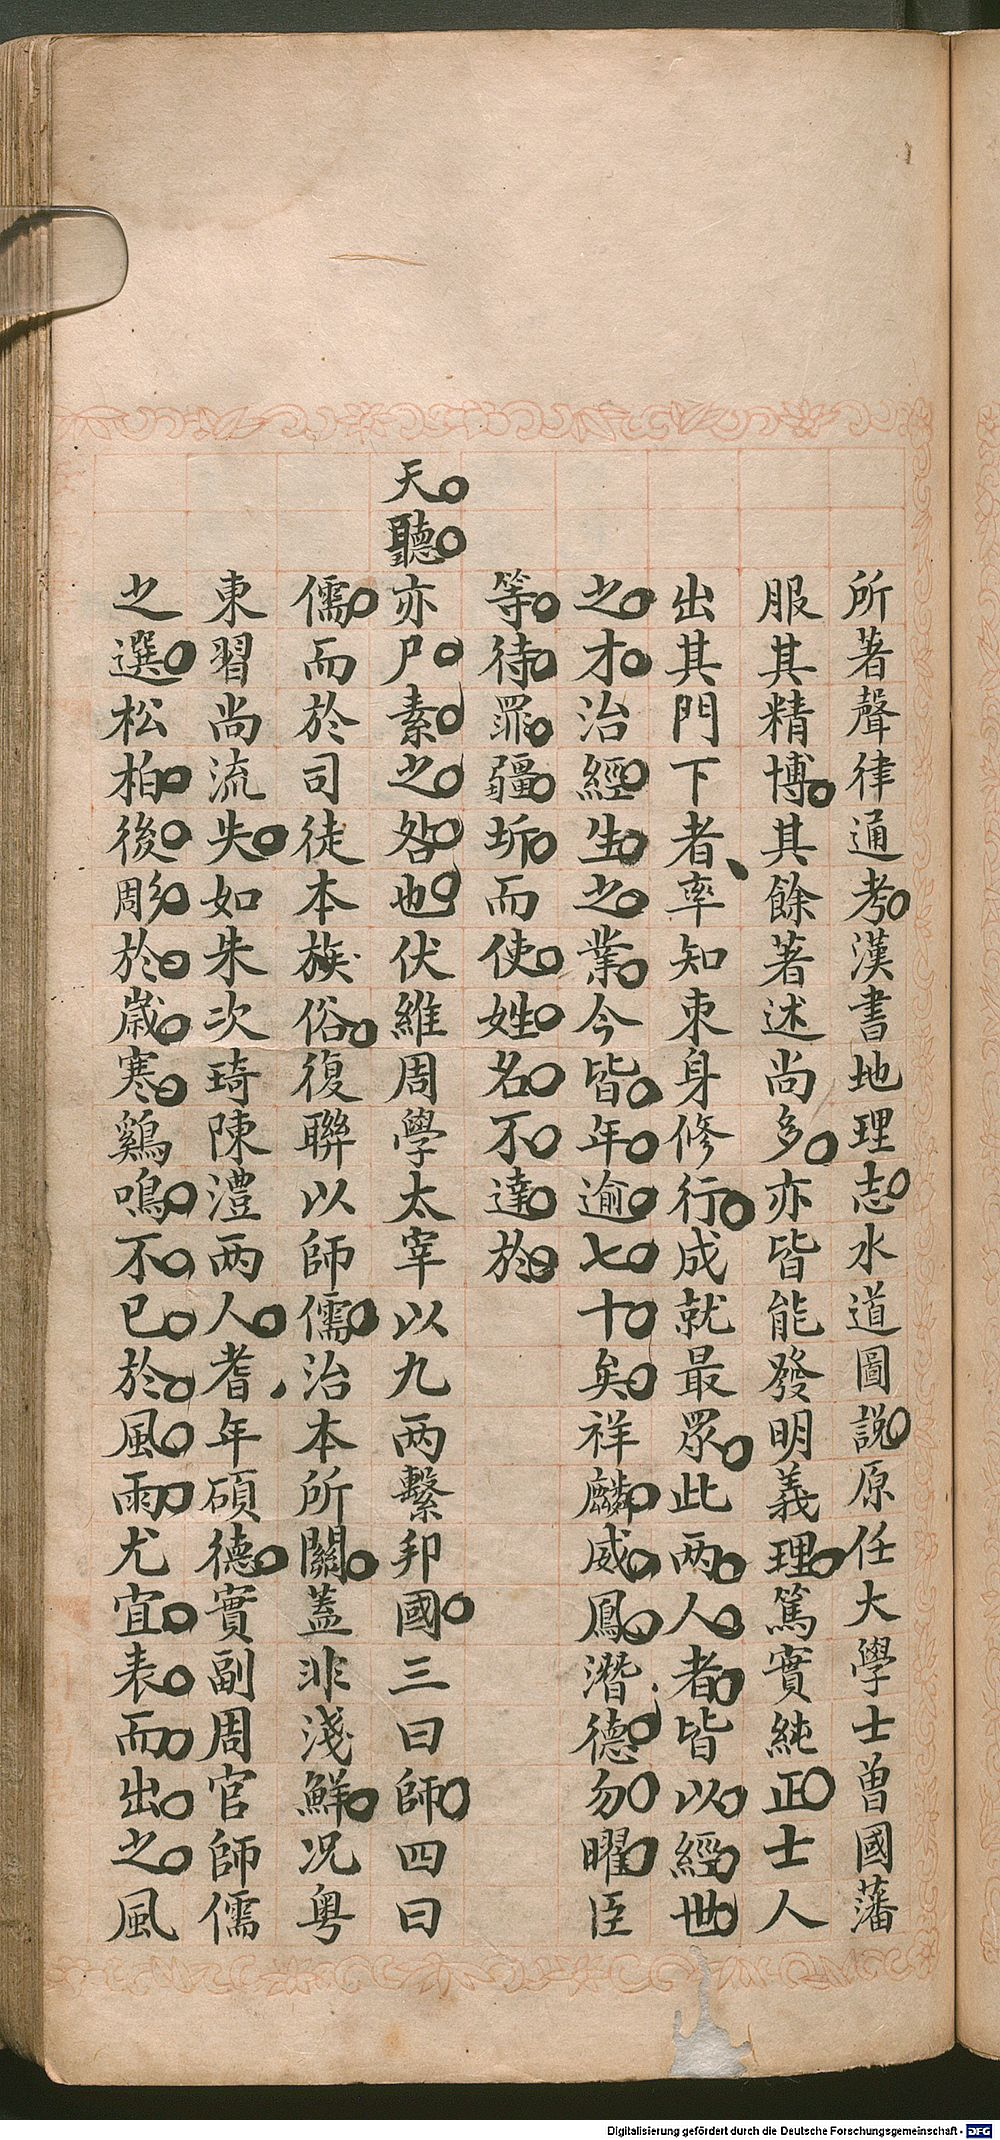 所著聲律通考漢書地理志水道圖説原任大學士曽國藩
服其精博其餘著述尚多亦皆能發明義理篤實純正士人
出其門下者率知束身修行成就最眾此两人者皆以經世
之才治經生之業今皆年逾七十矣祥麟威鳳潛德勿曜臣
等待罪疆圻而使姓名不達於
天聽亦尸素之咎也伏維周學太宰以九两繫邦國三曰師四曰
儒而於司徒本族俗復聯以師儒治本所關蓋非淺鮮况粤
東習尚流失如朱次琦陳澧两人耆年碩德實副周官師儒
之選松柏後彫於歲寒鷄鳴不已於風雨尤宜表而出之風
Digitalisierung gefördert durch die Deutsche Forschungsgemeinschaft - DFG